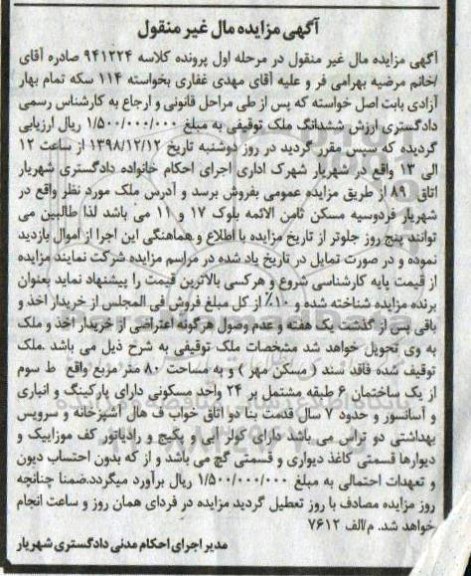 آگهی مزایده مال غیر منقول
آگهی مزایده مال غیر منقول در مرحله اول پرونده کلاسه ۹۴۱۲۲۴ صادره آقای
/خانم مرضیه بهرامی فر و علیه آقای مهدی غفاری بخواسته ۱۱۴ سکه تمام بهار
آزادی بابت اصل خواسته که پس از طی مراحل قانونی و ارجاع به کارشناس رسمی
دادگستری ارزش ششدانگ ملک توقیفی به مبلغ ۱/۵۰۰/۰۰۰/۰۰۰ ریال ارزیابی
گردیده که سپس مقرر گردید در روز دوشنبه تاریخ ۱۳۹۸/۱۲/۱۲ از ساعت ۱۲
الی ۱۳ واقع در شهریار شهرک اداری اجرای احکام خانواده دادگستری شهریار
اتاق ۸۹ از طریق مزایده عمومی بفروش برسد و آدرس ملک مورد نظر واقع در
شهریار فردوسیه مسکن ثامن الائمه بلوک ۱۷ و ۱۱ می باشد لذا طالبین می
توانند پنج روز جلوتر از تاریخ مزایده با اطلاع و هماهنگی این اجرا از اموال بازدید
نموده و در صورت تمایل در تاریخ یاد شده در مراسم مزایده شرکت نمایند مزایده
از قیمت پایه کارشناسی شروع و هرکسی بالاترین قیمت را پیشنهاد نماید بعنوان
برنده مزایده شناخته شده و ۱۰٪ از کل مبلغ فروش فی المجلس از خریدار اخذ و
باقی پس از گذشت یک هفته و عدم وصول هرگونه اعتراضی از خریدار اخذ و ملک
به وی تحویل خواهد شد مشخصات ملک توقیفی به شرح ذیل می باشد .ملک
توقیف شده فاقد سند ( مسکن مهر ) و به مساحت ۸۰ متر مربع واقع ط سوم
از یک ساختمان ۶ طبقه مشتمل بر ۲۴ واحد مسکونی دارای پارکینگ و انباری
و آسانسور و حدود ۷ سال قدمت بنا دو اتاق خواب ف هال آشپزخانه و سرویس
بهداشتی دو تراس می باشد دارای کولر آبی و پکیج و رادیاتور کف موزاییک و
دیوارها قسمتی کاغذ دیواری و قسمتی گچ می باشد و از که بدون احتساب دیون
و تعهدات احتمالی به مبلغ ۱/۵۰۰/۰۰۰/۰۰۰ ریال برآورد میگردد.ضمنا چنانچه
روز مزایده مصادف با روز تعطیل گردید مزایده در فردای همان روز و ساعت انجام
خواهد شد. م/الف ۷۶۱۲
مدیر اجرای احکام مدنی دادگستری شهریار